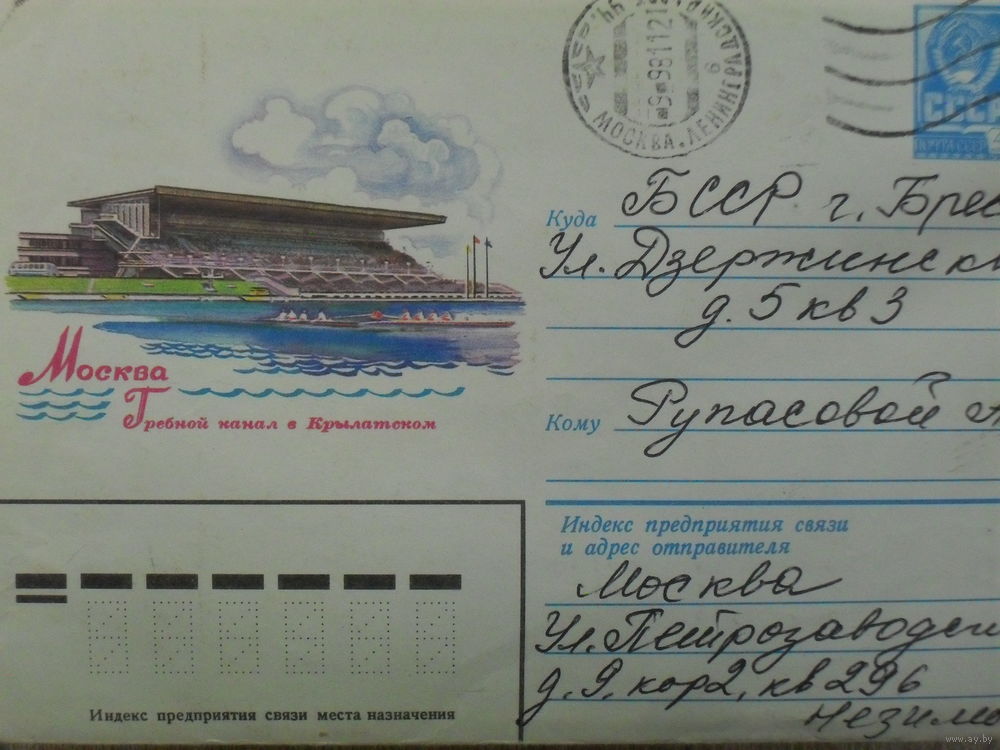 Москва
Гребной канал в Крылатском
МОСКВА. ЛЕНИНГРАДСКИЙ
СССР
Куда БССР г. Брес
Ул. Дзержинск
д. 5 кв 3
Кому Рупасовой
Индекс предприятия связи
и адрес отправителя
Москва
Ул. Петрозаводск
д. 9, кор2, кв 296
Индекс предприятия связи места назначения
www.ay.by